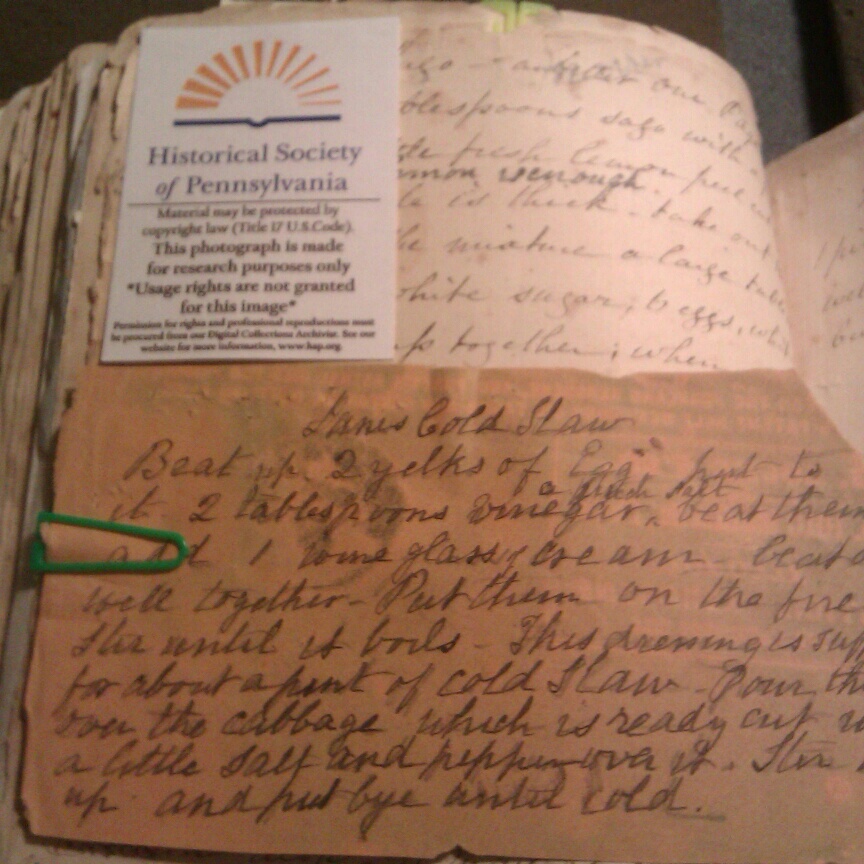 Historical Society
of Pennsylvania
Material may be protected by
copyright law (Title 17 U.S.Code).
This photograph is made
for research purposes only
*Usage rights are not granted
for this image*
Permission for rights and professional reproductions must
be procured from our Digital Collections Archivist. See our
website for more information, www.hsp.org.
our
blespoons sago with
fresh lemon peel
enough.
is thick - take out
the mixture a large
white sugar, 6 eggs,
up together; when
Cold Slaw
Beat up 2 yelks of Egg put to
a pinch salt
it 2 tablespoons vinegar, beat them
add 1 wine glass of cream - beat
well together - Put them on the fire
Stir until it boils - This dressing is suff
for about a pint of cold Slaw - Pour th
over the cabbage which is ready cut
a little salt and pepper over it. Stir
up and put bye until cold.